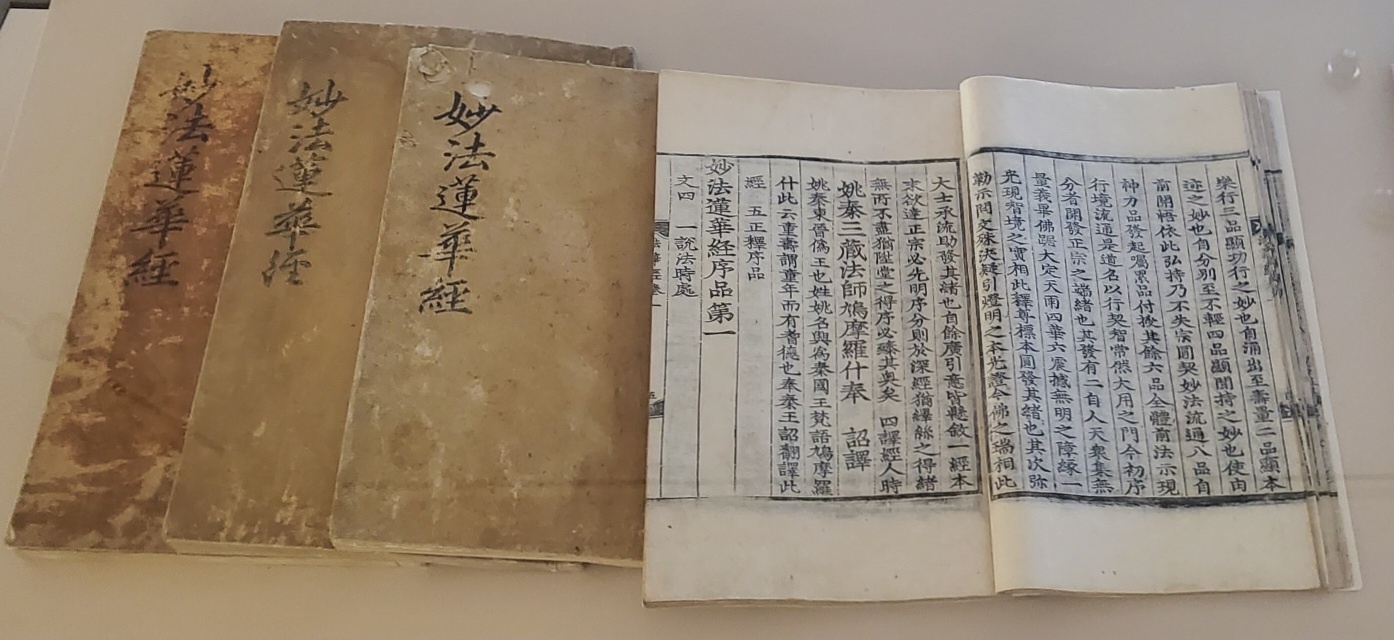 樂行三品顯功行之妙也自涌出至壽量二品顯本
迹之妙也自分別至不輕四品顯聞持之妙也使由
前開悟依此弘持乃不失宗圓契妙法流通八品自
神力品發起囑累品付授其餘六品全體前法示現
行境流通是道名以行契智常然大用之門今初序
分者開發正宗之端緒也其發有二自人天衆集無
量義畢佛踞大定天雨四華六震撼無明之障緣一
光現智境之實相此釋尊標本圓發其緒也其次弥
勒示問文殊決疑引燈明之本光證今佛之瑞相此
大士承流助發其緒也自餘廣引意皆懸敘一經本
末欲達正宗必先明序分則於深經猶繹絲之得緒
無所不盡猶陞堂之得序必臻其奧矣 四譯經人時
姚秦三藏法師鳩摩羅什奉 詔譯
姚秦東晉僞王也姓姚名興爲秦國王梵語鳩摩羅
什此云童壽謂童年而有耆德也奉秦王詔翻譯此
經 五正釋序品
妙法蓮華経序品第一
文四 一說法時處
妙法蓮華經
妙法蓮華経
妙法蓮華經